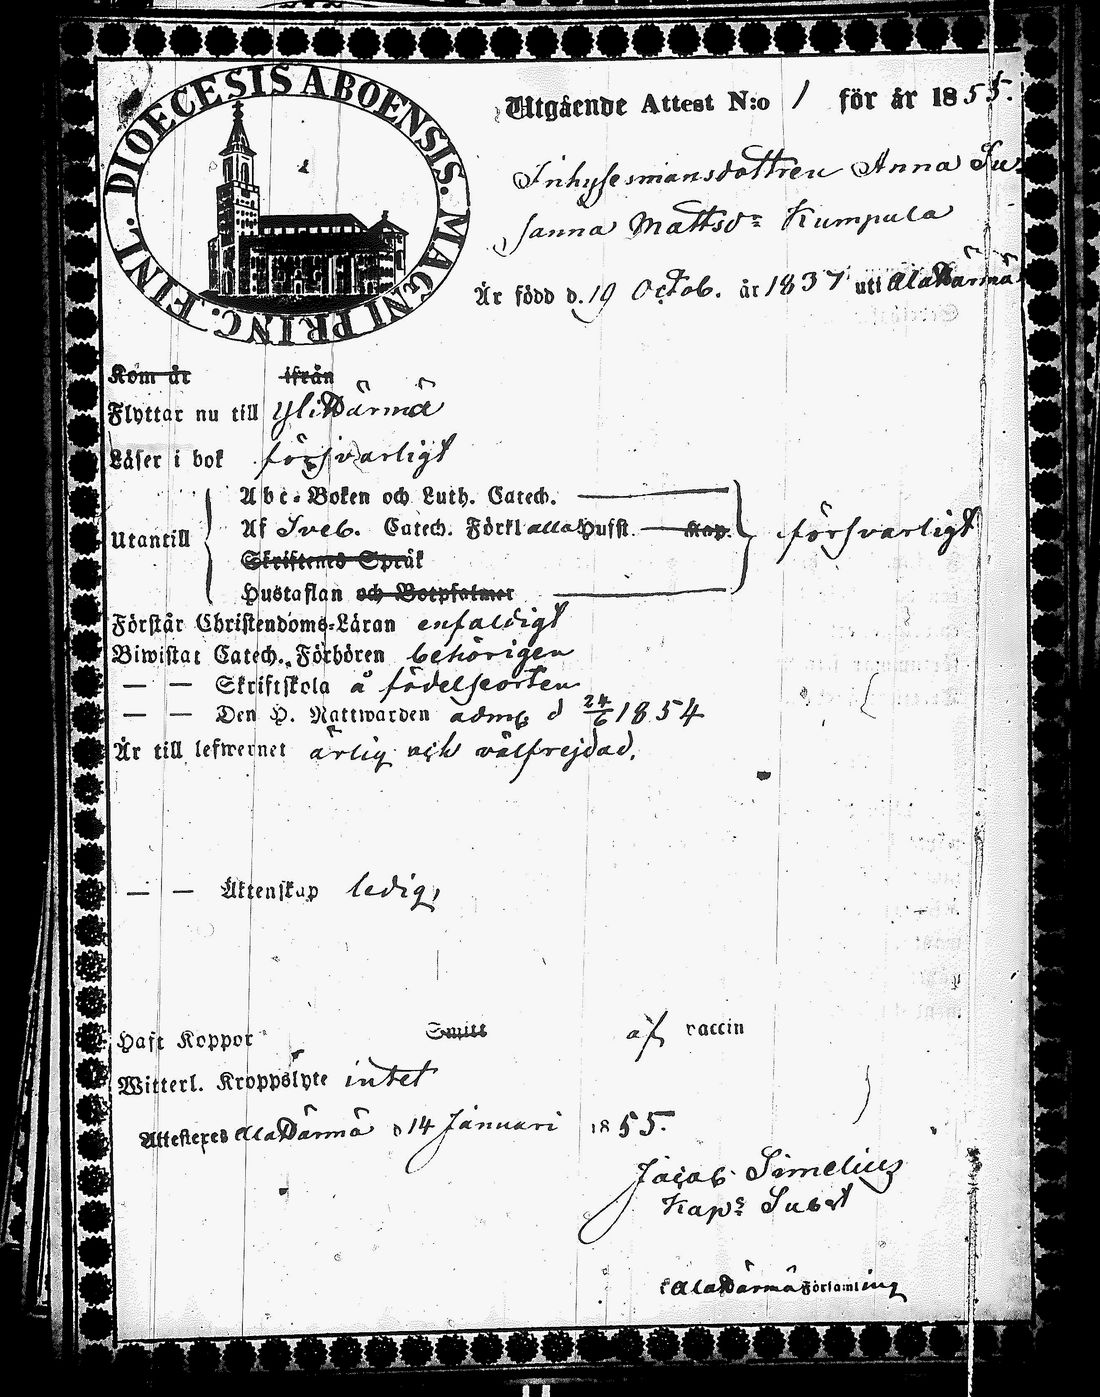 DIOECESIS ABOENSIS. MAGNI PRINC. FINL.
Utgående Attest N:o 1 för år 1855.
Inhysesmansdottren Anna Su-
sanna Mattsdr Kumpula
Är född d. 19 Octob. år 1837 uti AlaHärmä
Kom år ifrån
Flyttar nu till YliHärmä
Läser i bok försvarligt
Utantill
Abc-Boken och Luth. Catech.
Af Sveb. Catech. Förkl alla Hufst. Kap.
försvarligt
Skriftenes Språk
Hustaflan och Botpsalmer
Förstår Christendoms-Läran enfaldigt
Biwistat Catech. Förhören behörigen
— — Skriftskola å födelseorten
— — Den H. Nattwarden adms d 24/6 1854
Är till lefwernet ärlig och välfrejdad.
— — Äktenskap ledig,
Haft Koppor Smitt af vaccin
Witterl. Kroppslyte intet
Attesteres AlaHärmä d 14 Januari 1855.
Jacob Simelius
Kaps Subst
i AlaHärmä Församling